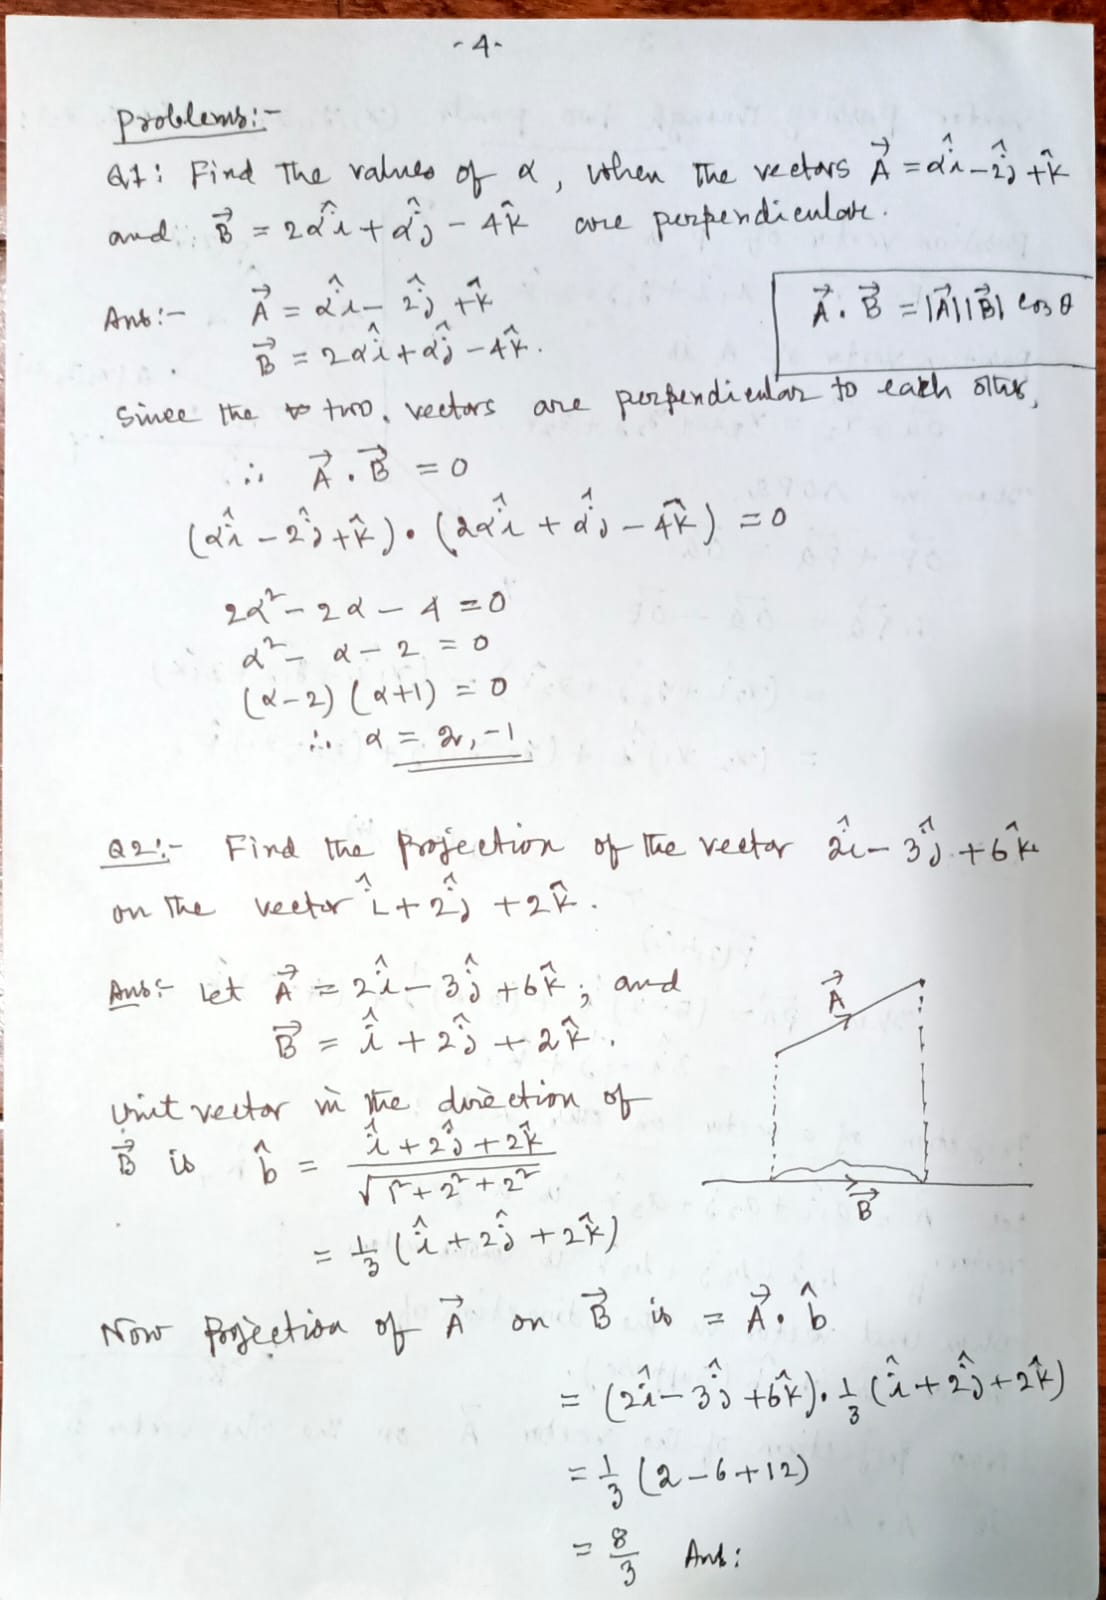 -4-
Problems:-
Q1: Find the values of α, when the vectors A⃗ = αî - 2ĵ + k̂
and B⃗ = 2αî + αĵ - 4k̂ are perpendicular.
Ans:- A⃗ = αî - 2ĵ + k̂
B⃗ = 2αî + αĵ - 4k̂.
A⃗ . B⃗ = |A⃗||B⃗| cos θ
Since the two vectors are perpendicular to each other,
∴ A⃗ . B⃗ = 0
(αî - 2ĵ + k̂) . (2αî + αĵ - 4k̂) = 0
2α² - 2α - 4 = 0
α² - α - 2 = 0
(α-2) (α+1) = 0
∴ α = 2, -1
Q2:- Find the Projection of the vector 2î - 3ĵ + 6k̂
on the vector î + 2ĵ + 2k̂.
Ans:- Let A⃗ = 2î - 3ĵ + 6k̂; and
B⃗ = î + 2ĵ + 2k̂.
Unit vector in the direction of
B⃗ is b̂ = (î + 2ĵ + 2k̂) / √(1² + 2² + 2²)
= 1/3 (î + 2ĵ + 2k̂)
A⃗
B⃗
Now Projection of A⃗ on B⃗ is = A⃗ . b̂
= (2î - 3ĵ + 6k̂) . 1/3 (î + 2ĵ + 2k̂)
= 1/3 (2 - 6 + 12)
= 8/3 Ans: